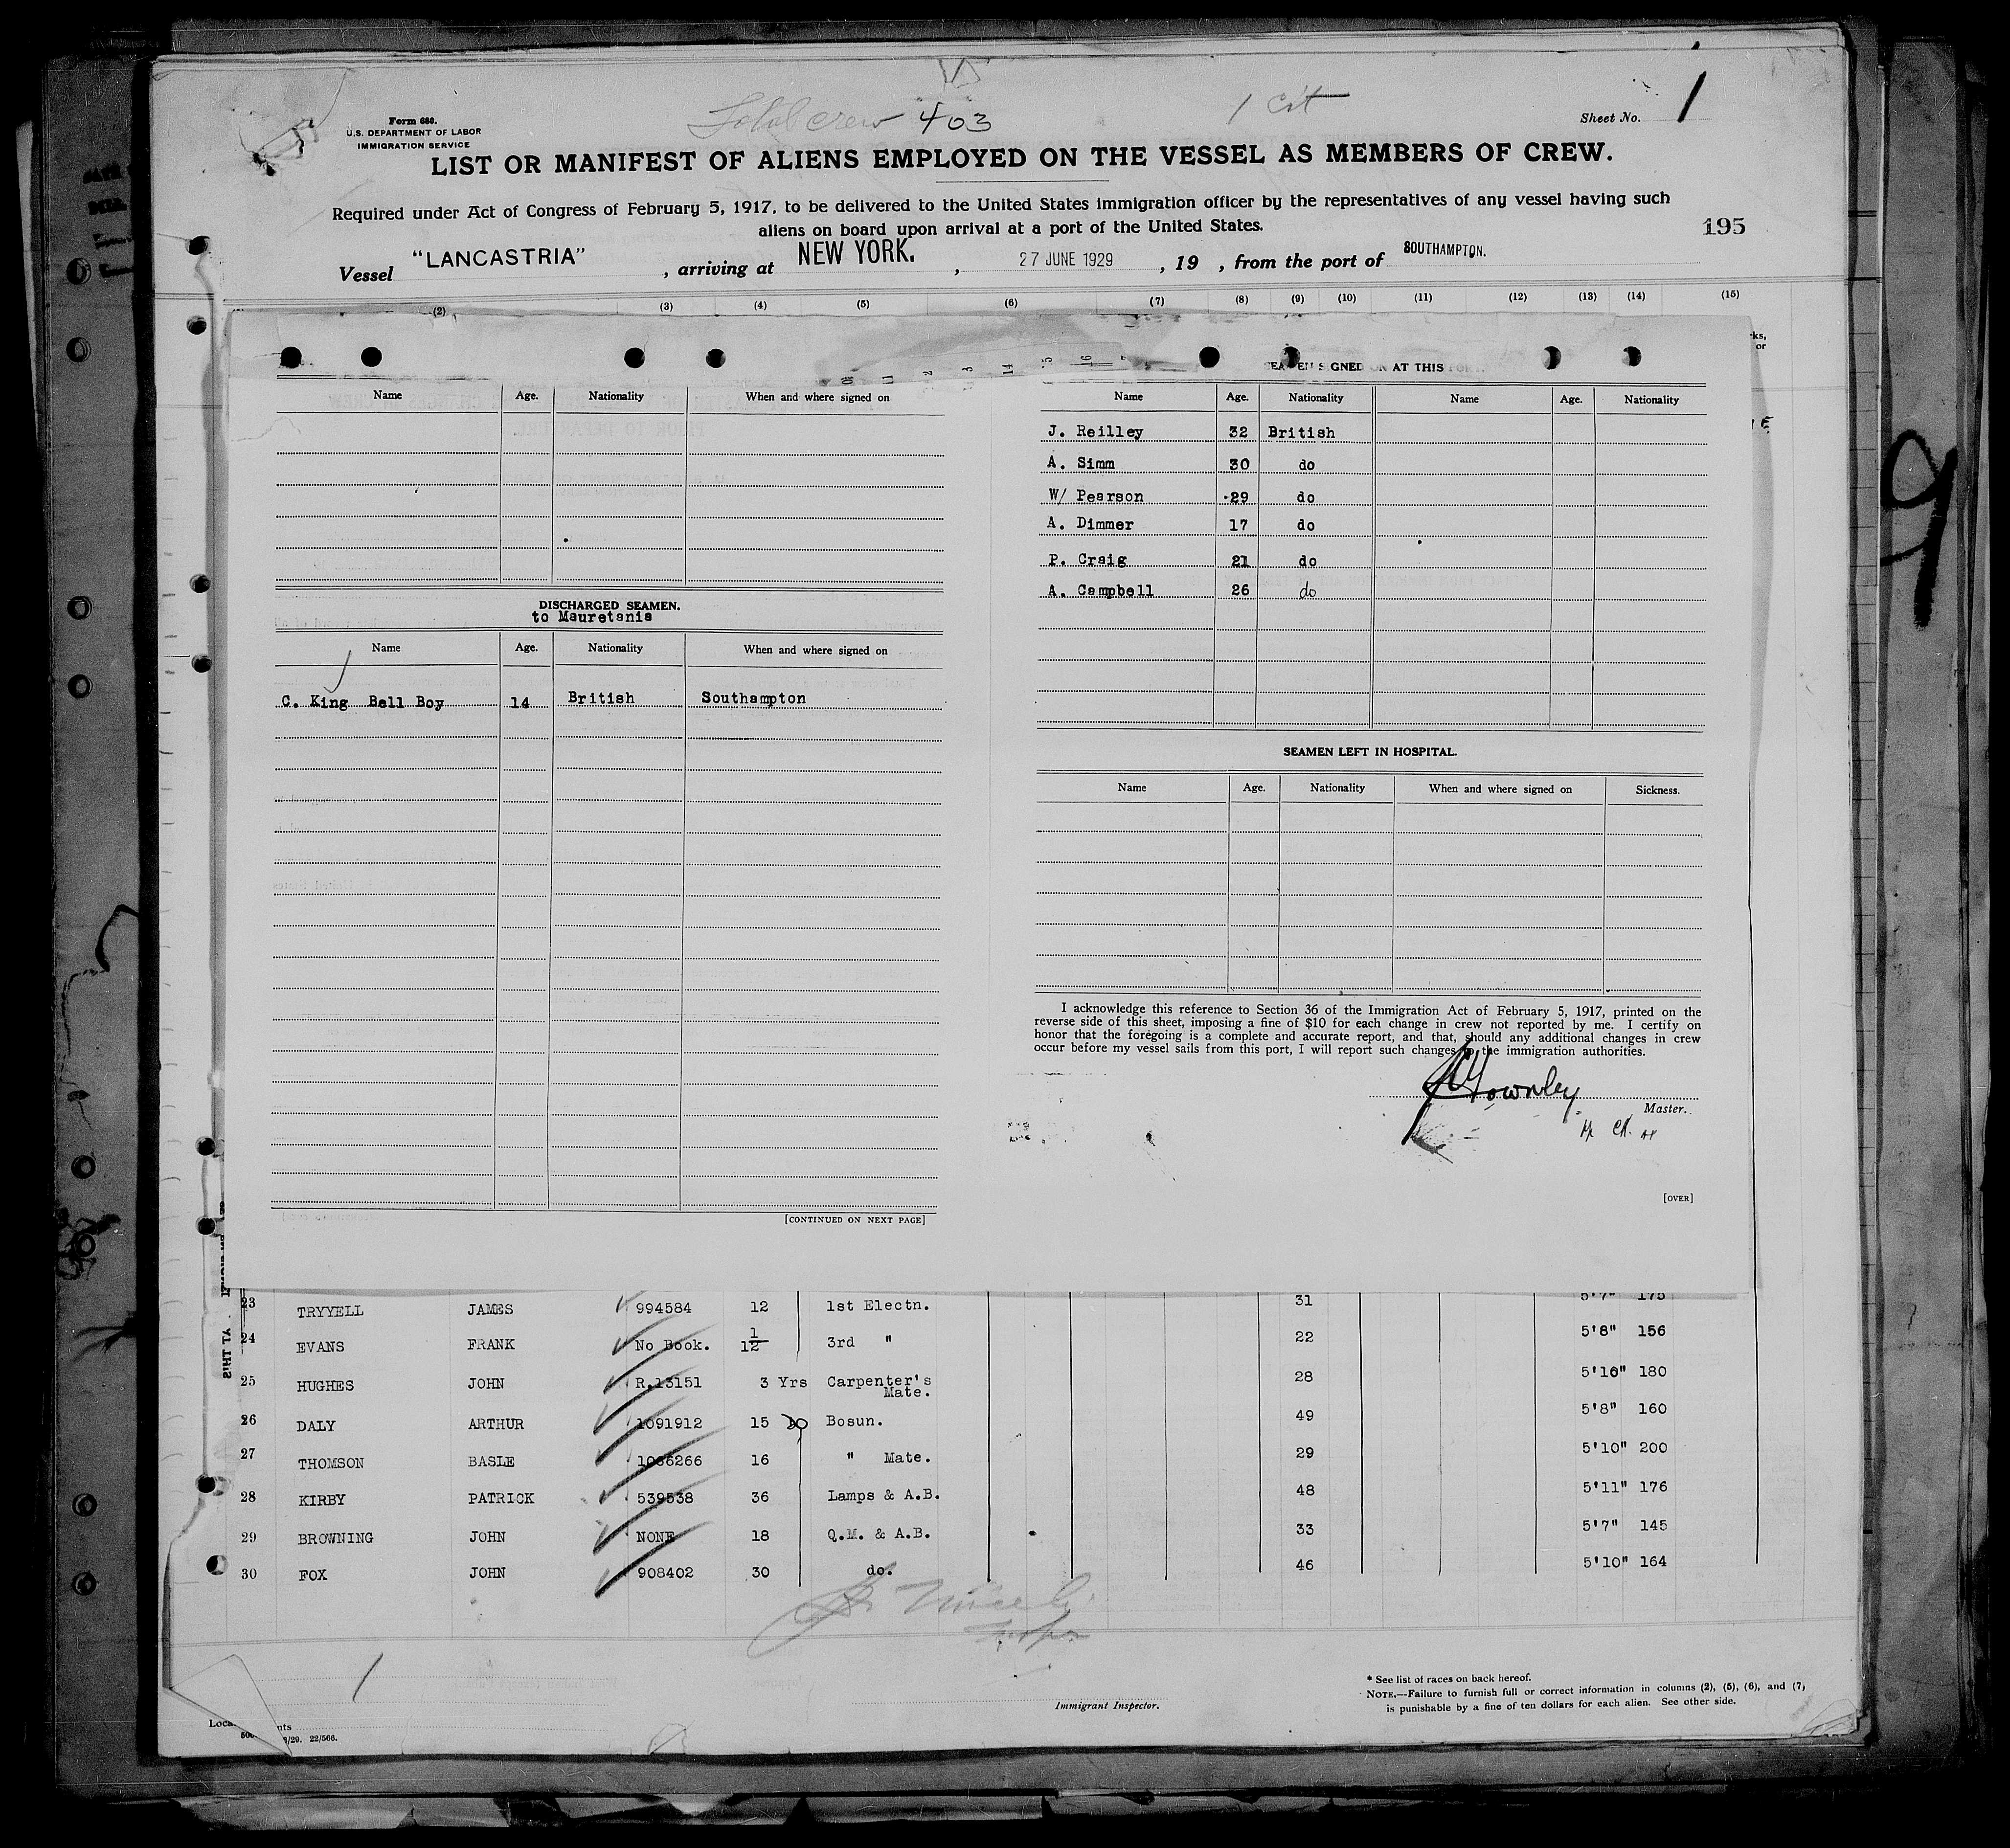 Total crew 403
1 cit
Form 680.
U.S. DEPARTMENT OF LABOR
IMMIGRATION SERVICE
Sheet No. 1
LIST OR MANIFEST OF ALIENS EMPLOYED ON THE VESSEL AS MEMBERS OF CREW.
Required under Act of Congress of February 5, 1917, to be delivered to the United States immigration officer by the representatives of any vessel having such
aliens on board upon arrival at a port of the United States.
195
Vessel "LANCASTRIA", arriving at NEW YORK., 27 JUNE 1929, 19 , from the port of SOUTHAMPTON.
(2) (3) (4) (5) (6) (7) (8) (9) (10) (11) (12) (13) (14) (15)
Name Age. Nationality When and where signed on
DISCHARGED SEAMEN.
to Mauretania
Name Age. Nationality When and where signed on
C. King Bell Boy 14 British Southampton
[CONTINUED ON NEXT PAGE]
SEAMEN SIGNED ON AT THIS PORT.
Name Age. Nationality Name Age. Nationality
J. Reilley 32 British
A. Simm 30 do
W/ Pearson 29 do
A. Dimmer 17 do
P. Craig 21 do
A. Campbell 26 do
SEAMEN LEFT IN HOSPITAL.
Name Age. Nationality When and where signed on Sickness.
I acknowledge this reference to Section 36 of the Immigration Act of February 5, 1917, printed on the
reverse side of this sheet, imposing a fine of $10 for each change in crew not reported by me. I certify on
honor that the foregoing is a complete and accurate report, and that, should any additional changes in crew
occur before my vessel sails from this port, I will report such changes to the immigration authorities.
Townley
Master.
[OVER]
23 TRYYELL JAMES 994584 12 1st Electn. 31 5'7" 175
24 EVANS FRANK No Book. 1/12 3rd " 22 5'8" 156
25 HUGHES JOHN R.13151 3 Yrs Carpenter's Mate. 28 5'10" 180
26 DALY ARTHUR 1091912 15 do Bosun. 49 5'8" 160
27 THOMSON BASLE 1066266 16 " Mate. 29 5'10" 200
28 KIRBY PATRICK 539538 36 Lamps & A.B. 48 5'11" 176
29 BROWNING JOHN NONE 18 Q.M. & A.B. 33 5'7" 145
30 FOX JOHN 908402 30 do. 46 5'10" 164
1
Immigrant Inspector.
* See list of races on back hereof.
NOTE.—Failure to furnish full or correct information in columns (2), (5), (6), and (7,
is punishable by a fine of ten dollars for each alien. See other side.
22/566.